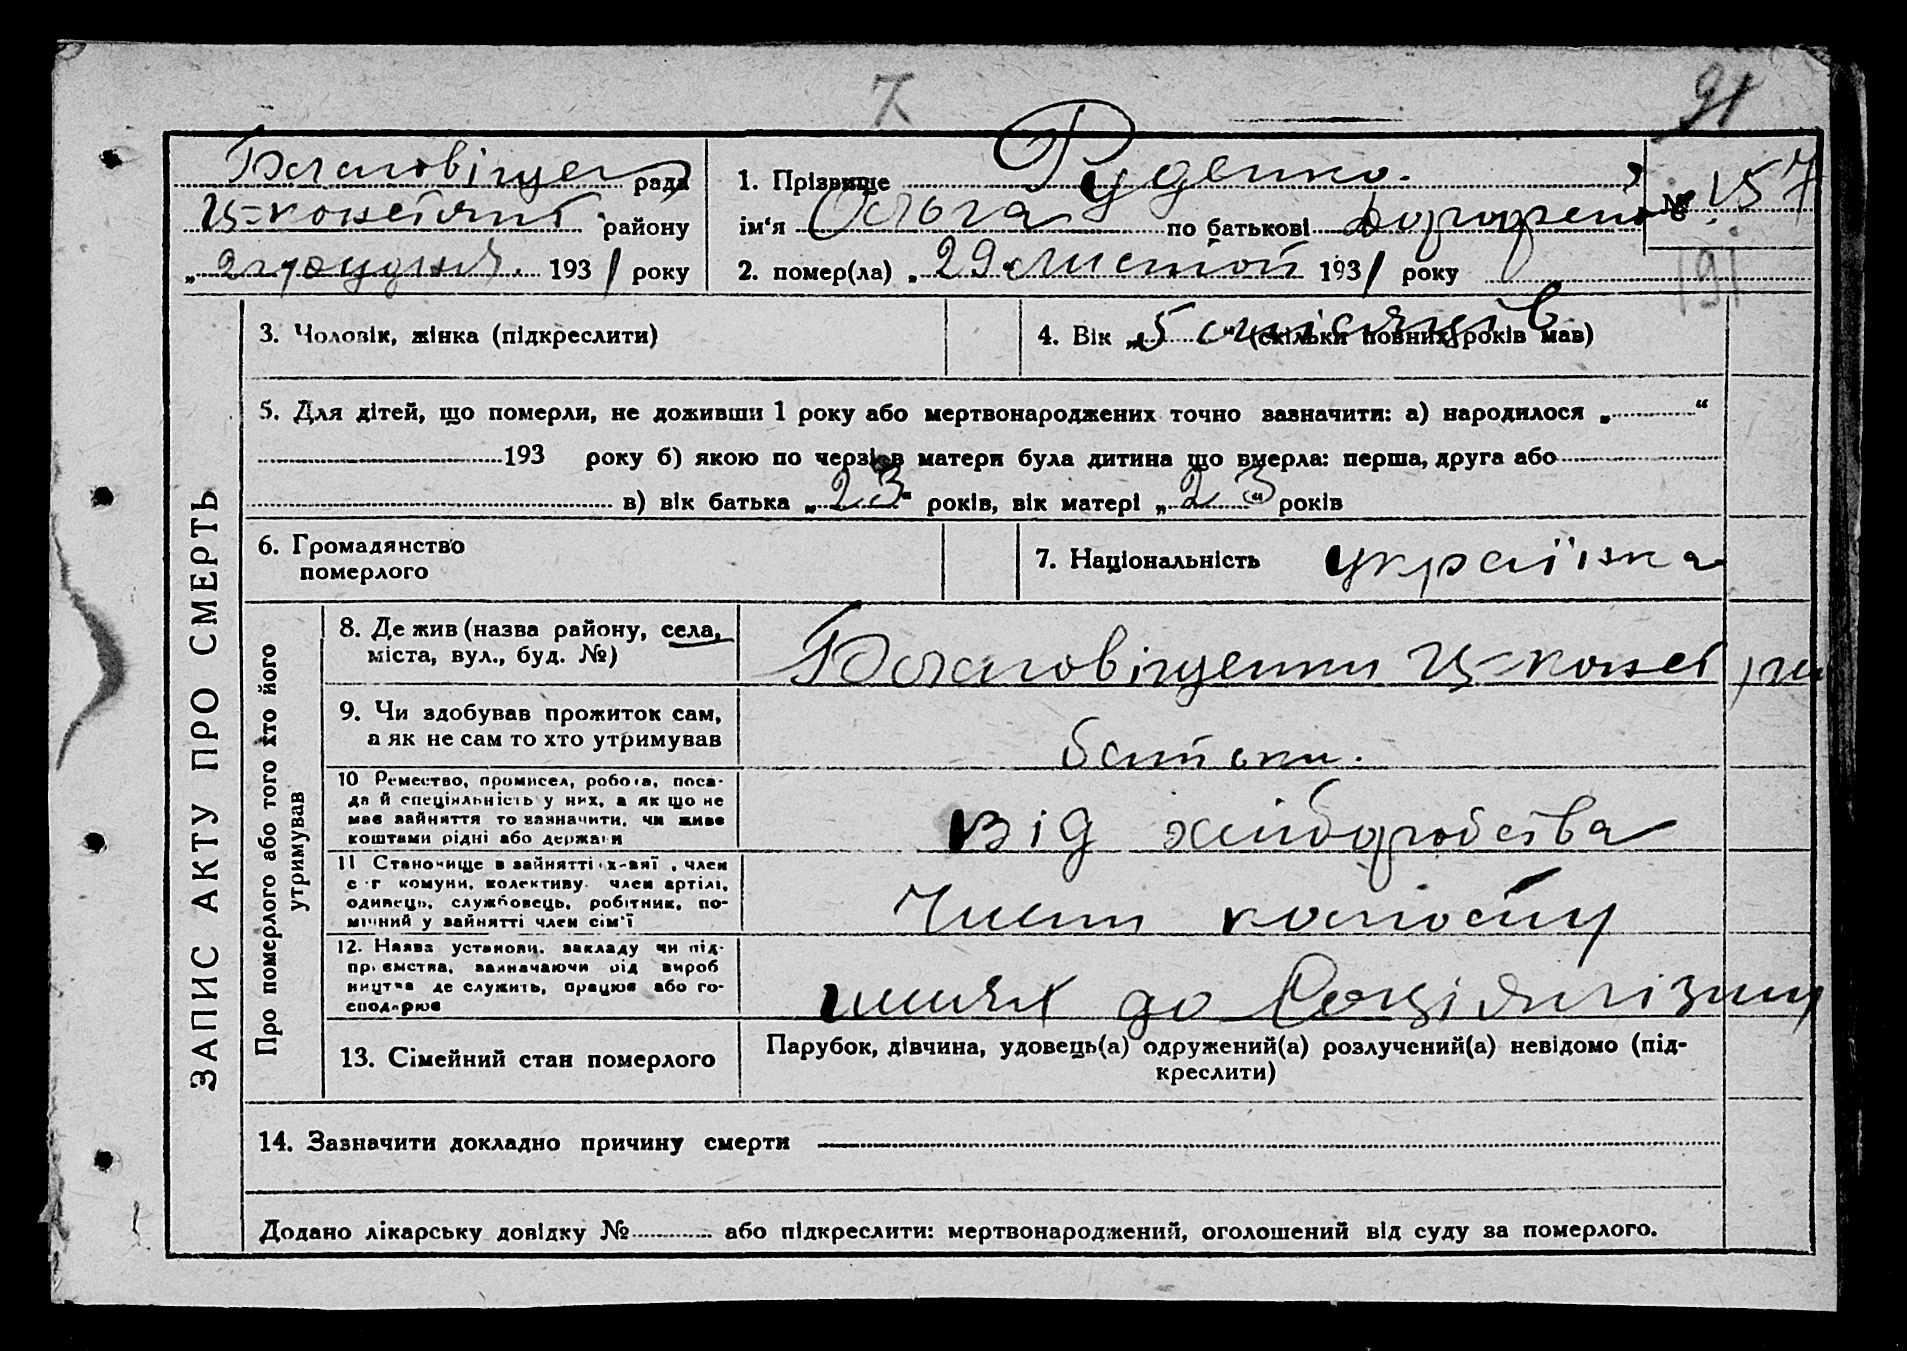 7 91
Благовіщен рада
Ц-констянт району
„2 грудня 1931 року
1. Прізвище Руденко.
№ 157
ім'я Ольга по батькові
2. помер(ла) „29 листоп 1931 року
191
ЗАПИС АКТУ ПРО СМЕРТЬ
3. Чоловік, жінка (підкреслити)
4. Вік „5 місяців (скільки повних років мав)
5. Для дітей, що померли, не доживши 1 року або мертвонароджених точно зазначити: а) народилося „ “
193 року б) якою по черзі в матери була дитина що вмерла: перша, друга або
в) вік батька „23“ років, вік матері „23“ років
6. Громадянство
померлого
7. Національність українка
Про померлого або того хто його
утримував
8. Де жив (назва району, села,
міста, вул., буд. №)
Благовіщенки Ц-конст
9. Чи здобував прожиток сам,
а як не сам то хто утримував
батьки.
10 Ремество, промисел, робота, поса-
да й спеціяльність у них, а як що не
має зайняття то зазначити, чи живе
коштами рідні або держави
від хліборобства
11 Становище в зайнятті х-вяї, член
с-г комуни, колективу, член артілі,
одинець, службовець, робітник, по-
мічний у зайнятті член сім'ї
Член колости
12. Назва установи, закладу чи під-
приємства, зазначаючи рід вироб
ництва де служить, працює або го-
сподарює
шлях до Соціялізму
13. Сімейний стан померлого
Парубок, дівчина, удовець(а) одружений(а) розлучений(а) невідомо (під-
креслити)
14. Зазначити докладно причину смерти
Додано лікарську довідку № або підкреслити: мертвонароджений, оголошений від суду за померлого.